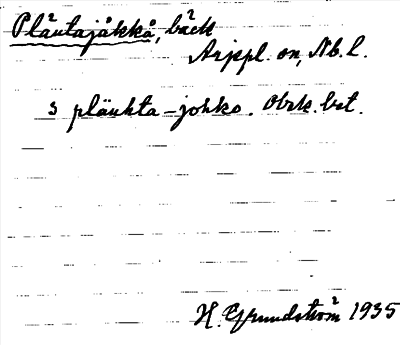 Plåutajåkkå, bäck
Arjppl. sn, Nb. l.
s plāuhta-johko. Obek. bet.
H. Grundström 1935